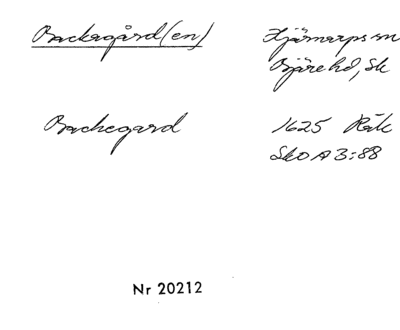 Backagård(en)
Hjärnarps sn
Bjäre hd, Sk
Backegard
1625 Räk
Sko A 3:88
Nr 20212